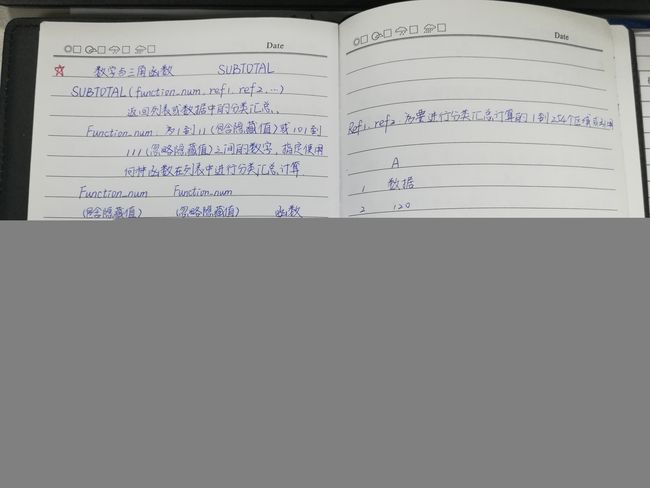 Date
☆ 数学与三角函数 SUBTOTAL
SUBTOTAL(function_num, ref1, ref2, …)
返回列表或数据中的分类汇总、
Function_num、为1到11(包含隐藏值)或101到
111(忽略隐藏值)之间的数字,指定使用
何种函数在列表中进行分类汇总计算
Function_num Function_num
(包含隐藏值) (忽略隐藏值) 函数
Date
Ref1、ref2 为要进行分类汇总计算的1到254个区域或引用
A
1 数据
2 120